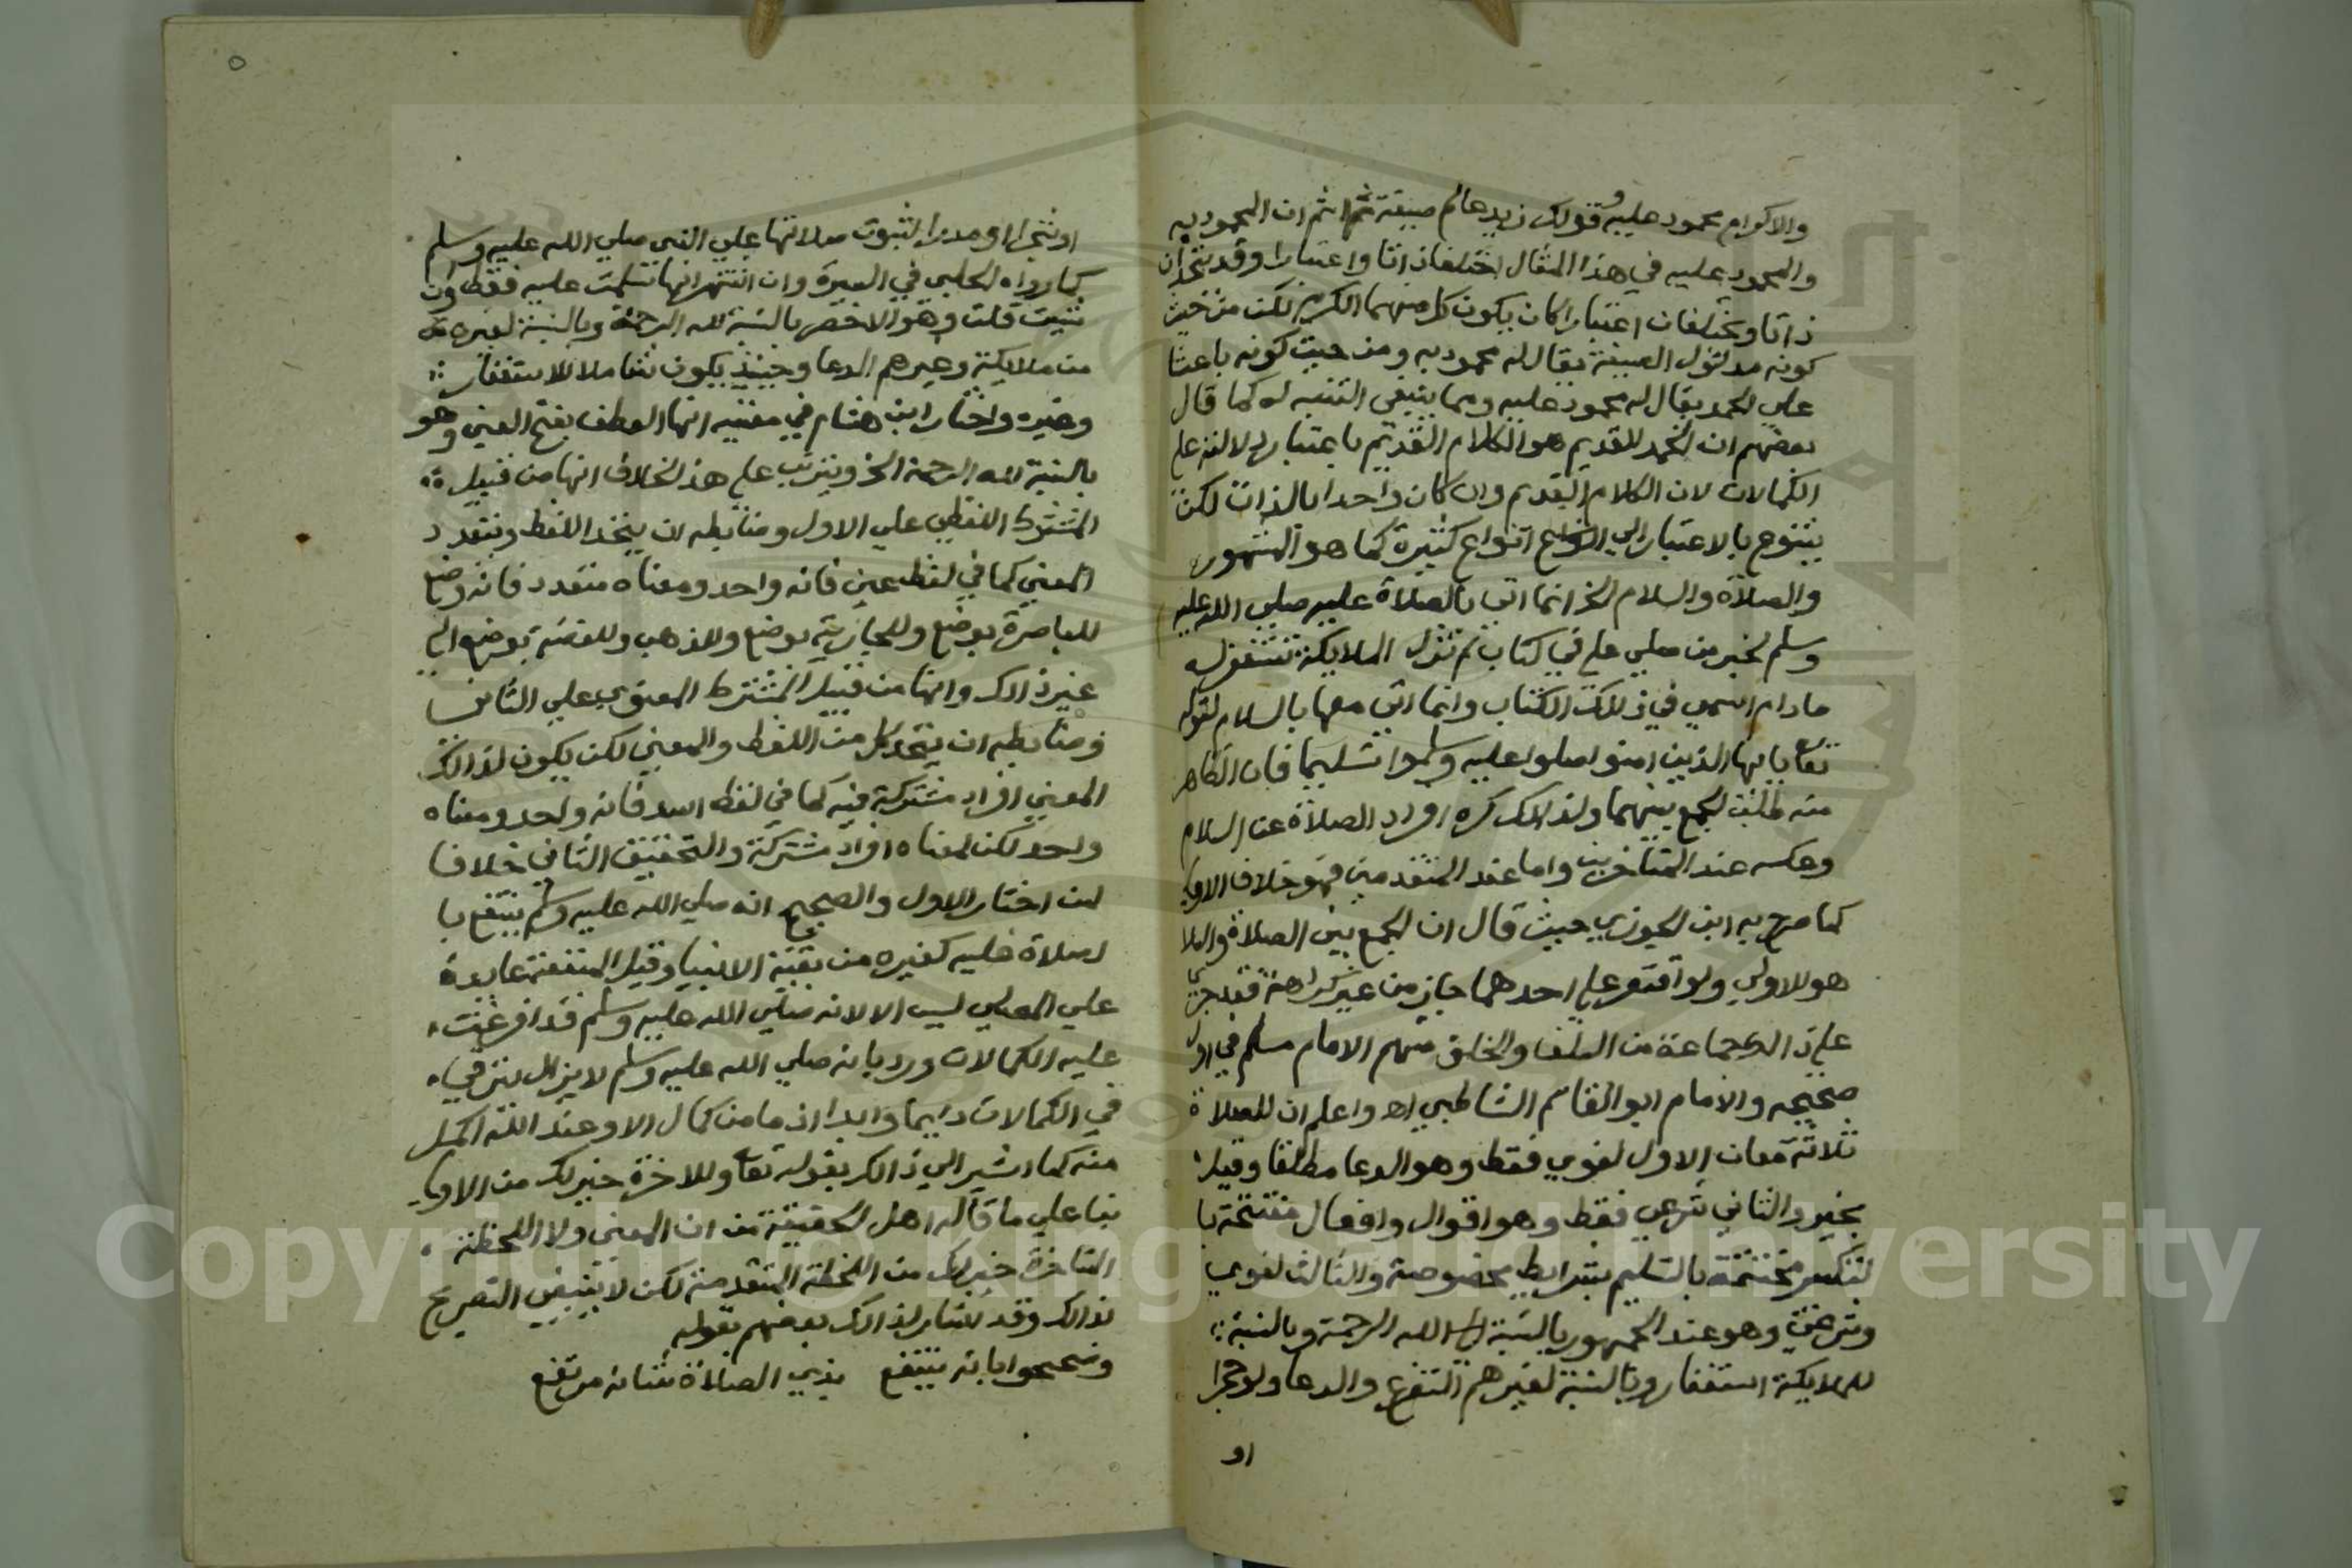 والاكرام محمود عليه وقولك زيد عالم صيغة ثم ان المحمود به
والمحمود عليه في هذا المثال اختلفا ذاتا واعتبارا وقد يتحدان
ذاتا ويختلفان اعتبارا كان يكون كل منهما الكرم لكن من حيث
كونه مدلول الصيغة يقال له محمود به ومن حيث كونه باعثا
علي الحمد يقال له محمود عليه ومما ينبغي التنبه له كما قال
بعضهم ان الحمد القديم هو الكلام القديم باعتبار دلالته علي
الكمالات لان الكلام القديم وان كان واحدا بالذات لكن
يتنوع بالاعتبار الي انواع كثيرة كما هو المشهور
والصلاة والسلام الخ انما اتي بالصلاة عليه صلي الله عليه
وسلم لخبر من صلي علي في كتاب لم تزل الملايكة تستغفر له
مادام اسمي في ذلك الكتاب وانما اتي معها بالسلام لقوله
تعا يا ايها الذين امنوا صلوا عليه وسلموا تسليما فان الظاهر
منه طلب الجمع بينهما ولذالك كره افراد الصلاة عن السلام
وعكسه عند المتاخرين واما عند المتقدمين فهو خلاف الاولي
كما صرح به ابن الجوزي حيث قال ان الجمع بين الصلاة والسلا
هو الاولي ولو اقتصر علي احدهما جاز من غير كراهة فقد جري
علي ذالك جماعة من السلف والخلف منهم الامام مسلم في اول
صحيحه والامام ابو القاسم الشاطبي اه واعلم ان للصلاة
ثلاثة معان الاول لغوي فقط وهو الدعا مطلقا وقيل
بخير والثاني شرعي فقط وهو اقوال وافعال مفتتحة با
لتكبير مختتمة بالتسليم بشرايط مخصوصة والثالث لغوي
وشرعي وهو عند الجمهور بالنسبة الله الرحمة وبالنسبة
للملايكة استغفار وبالنسبة لغيرهم التضرع والدعا ولو حجرا
او
٥
او شجرا او مدرا لثبوت صلاتها علي النبي صلي الله عليه وسلم
كما رواه الحلبي في السيرة وان اشتهر انها سلمت عليه فقط وان
شيت قلت وهو الاخصر بالنسبة لله الرحمة وبالنسبة لغيره
من ملايكة وغيرهم الدعا وحينئذ يكون شاملا للاستغفار
وغيره واختار ابن هشام في مغنيه انها العطف بفتح العين وهو
بالنسبة لله الرحمة الخ ويترتب علي هذ الخلاف انها من قبيل
المشترك اللفظي علي الاول وضابطه ان يتحد اللفظ ويتعدد
المعني كما في لفظ عين فانه واحد ومعناه متعدد فانه وضع
للباصرة بوضع وللجارية بوضع وللذهب وللفضة بوضع الي
غير ذالك وانها من قبيل المشترك المعنوي علي الثاني
وضابطه ان يتحد كل من اللفظ والمعني لكن يكون لذالك
المعني افراد مشتركة فيه كما في لفظ اسد فانه واحد ومعناه
واحد لكن لمعناه افراد مشتركة والتحقيق الثاني خلافا
لمن اختار الاول والصحيح انه صلي الله عليه وسلم ينتفع با
لصلاة عليه كغيره من بقية الانبيا وقيل المنفعة عايدة
علي المصلي ليس الا لانه صلي الله عليه وسلم قد افرغت
عليه الكمالات ورد بانه صلي الله عليه وسلم لا يزال يترقي
في الكمالات دايما وابدا اذ ما من كمال الا وعند الله اكمل
منه كما اشير الي ذالك بقوله تعا وللاخرة خير لك من الاولي
بنا علي ما قاله اهل الحقيقة من ان المعني وللا اللحظة
المتاخرة خير لك من اللحظة المتقدمة لكن لا ينبغي التصريح
بذالك وقد اشار لذالك بعضهم بقوله
وصححوا بانه ينتفع بذي الصلاة شانه مرتفع